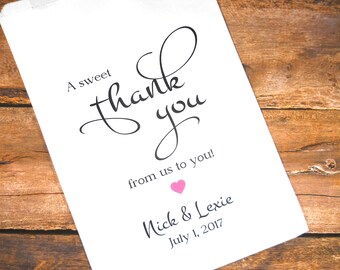 A sweet
thank
you
from us to you!
Nick & Lexie
July 1, 2017